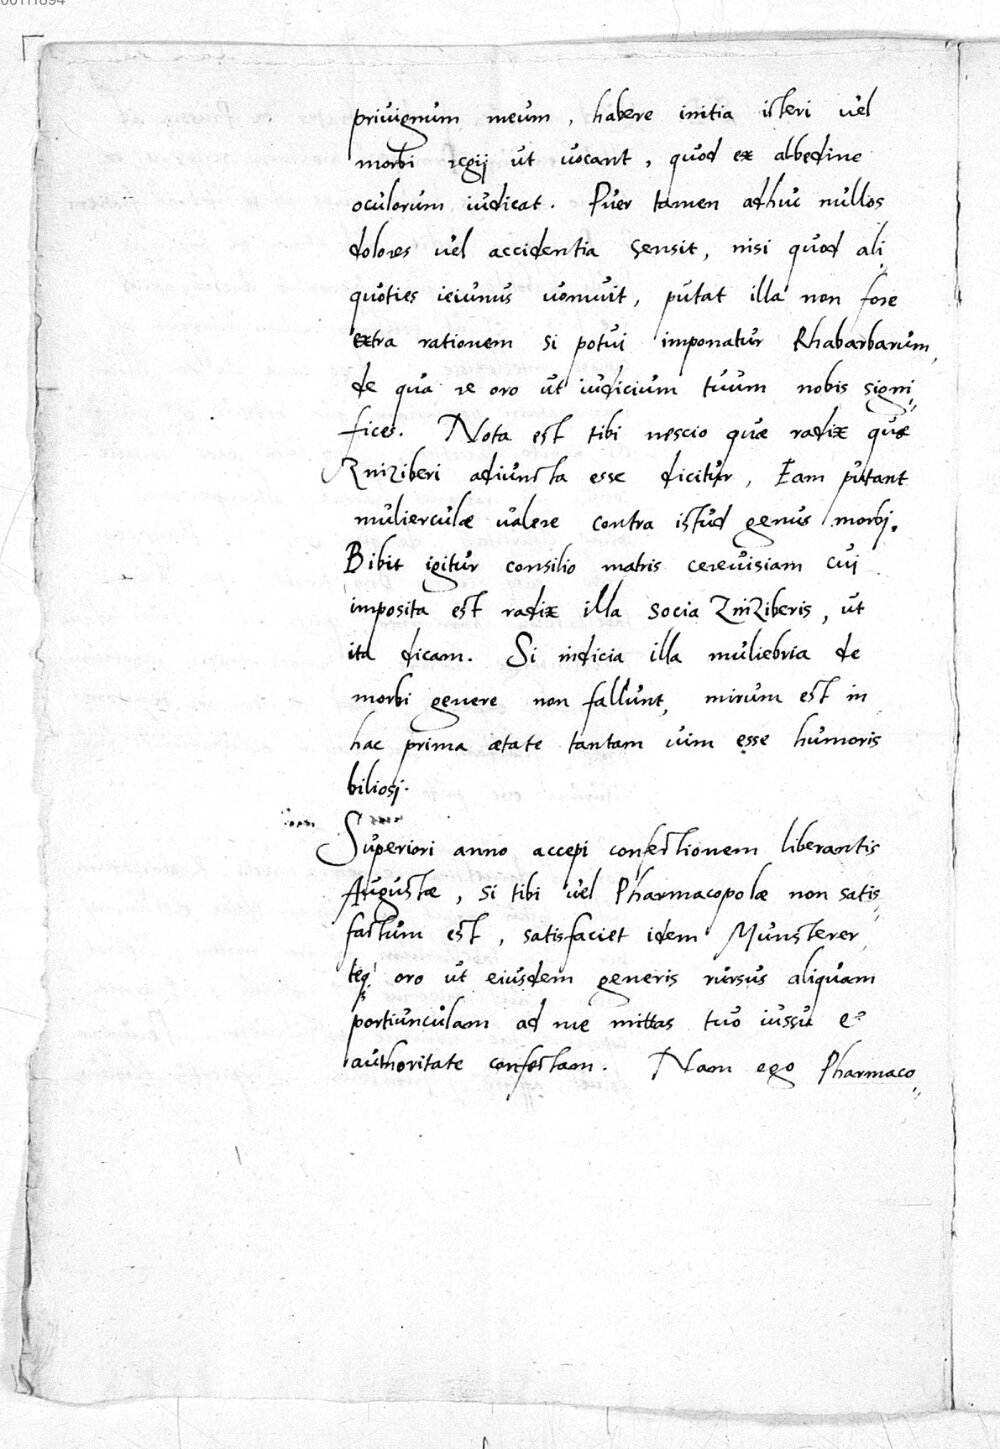 privignum meum, habere initia icteri vel
morbi regij ut vocant, quod ex albedine
oculorum iudicat. Puer tamen adhuc nullos
dolores vel accidentia sensit, nisi quod ali
quoties ieiunus vomuit, putat illa non fore
extra rationem si potui imponatur Rhabarbarum,
de qua re oro ut iudicium tuum nobis signi,,
fices. Nota est tibi nescio quæ radix quæ
Zniziberi adiuncta esse dicitur, Eam putant
mulierculæ valere contra istud genus morbi.
Bibit igitur consilio matris cerevisiam cui
imposita est radix illa socia Zniziberis, ut
ita dicam. Si indicia illa muliebria de
morbi genere non fallunt, mirum est in
hac prima ætate tantam vim esse humoris
biliosi.
Superiori anno accepi confectionem liberantis
Augustæ, si tibi vel Pharmacopolæ non satis,,
factum est, satisfaciet idem Munsterer,
teq; oro ut eiusdem generis rursus aliquam
portiunculam ad me mittas tuo iussu et
authoritate confectam. Nam ego Pharmaco,,